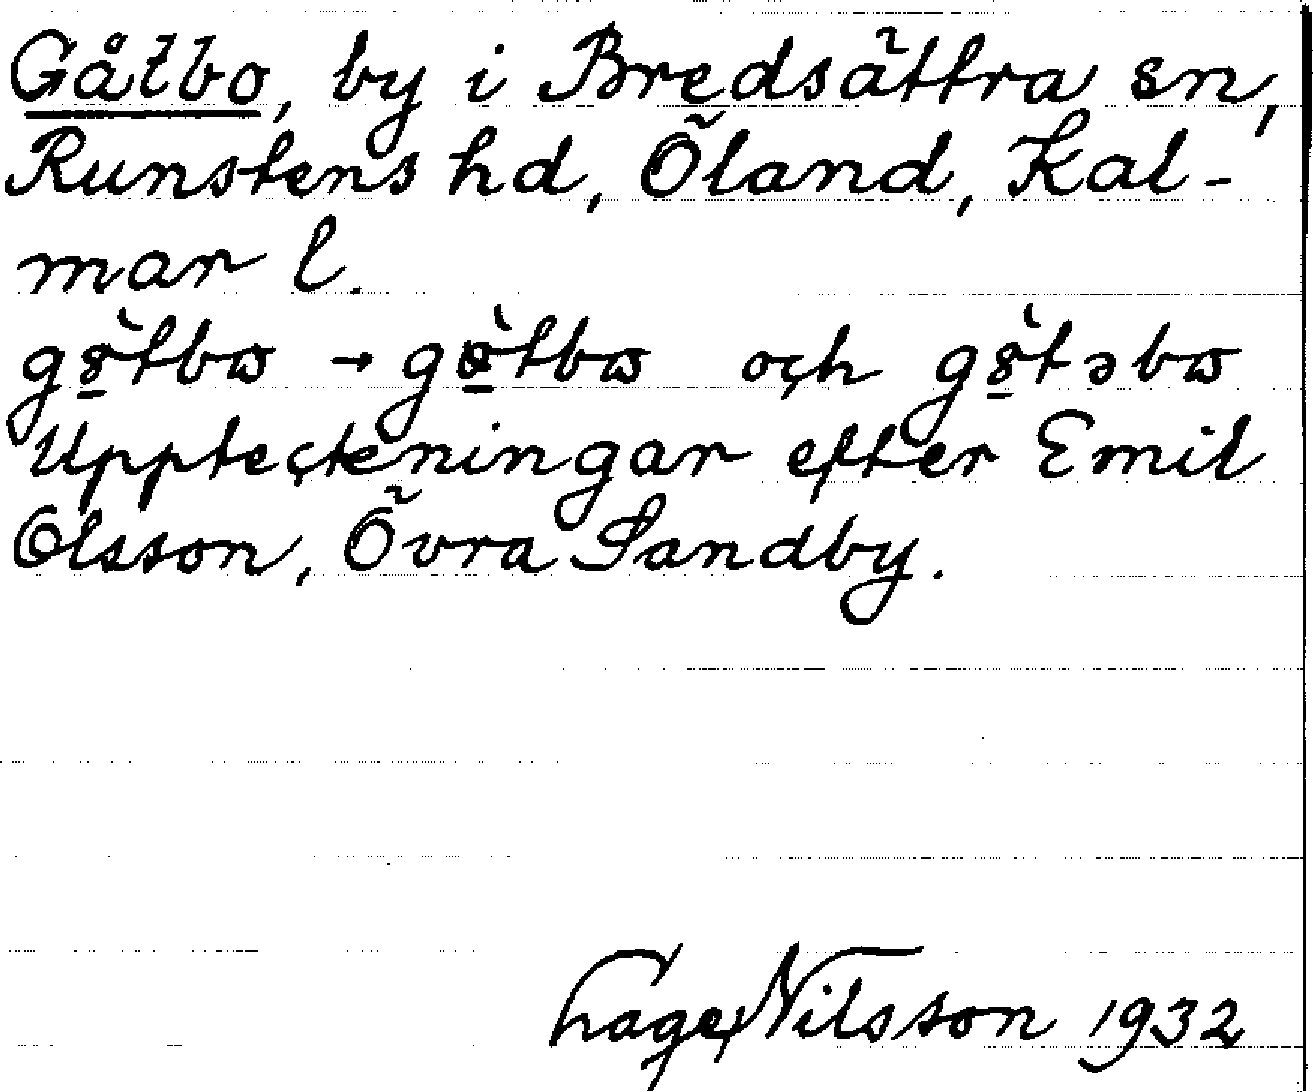 Gåtbo, by i Bredsättra sn,
Runstens hd, Öland, Kal-
mar l.
och
Uppteckningar efter Emil
Olsson, Övra Sandby.
Nilsson 1932